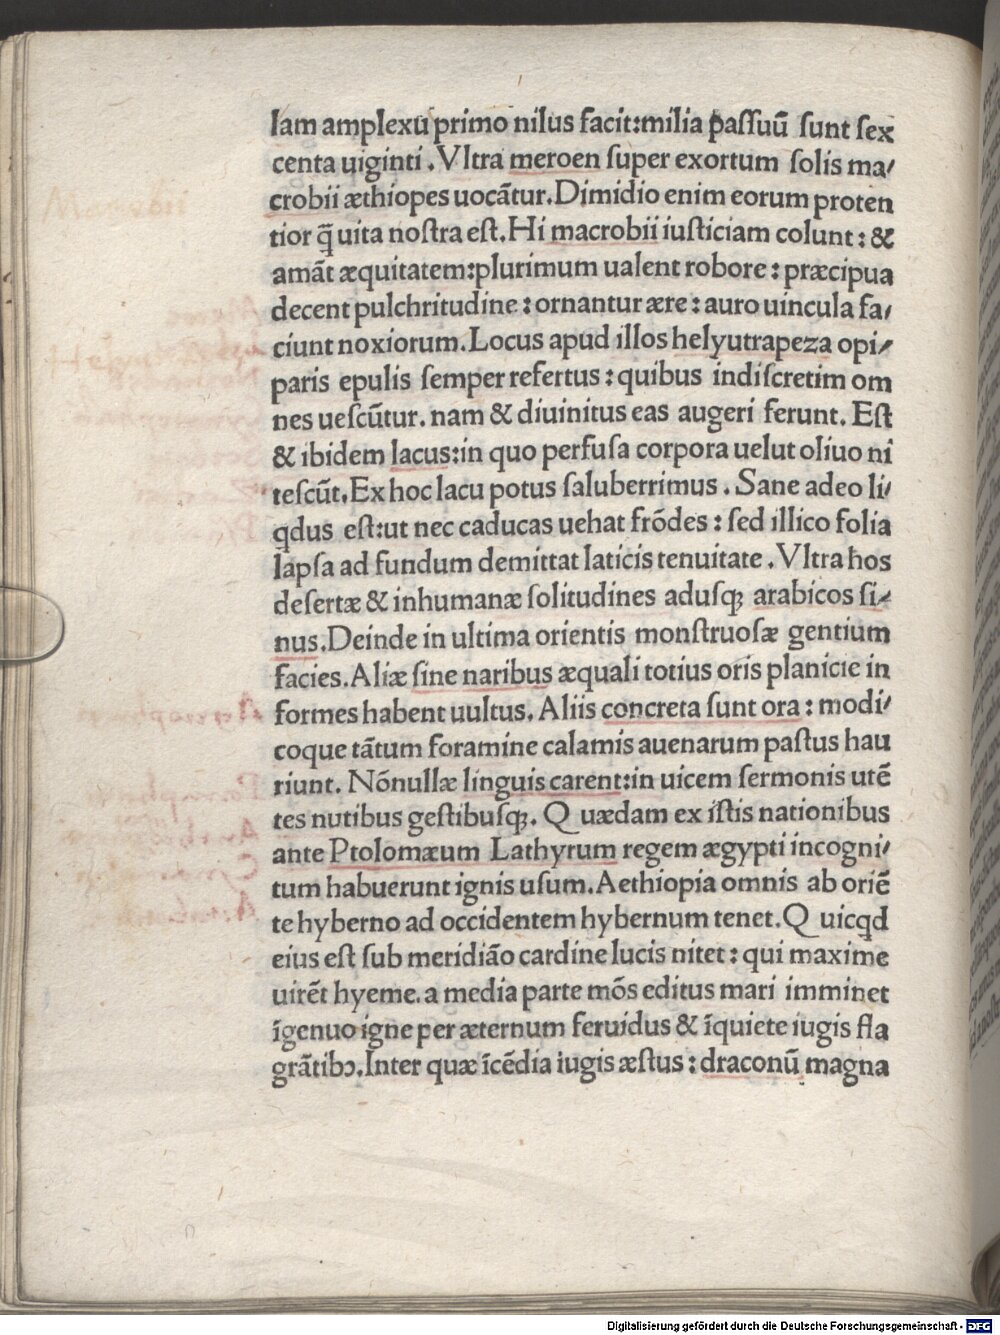 Macrobii
lam amplexu primo nilus facit:milia ꝑaſſuū ſunt ſex
centa uiginti. Vltra meroen ſuper exortum ſolis ma/
crobii æthiopes uocãtur. Dimidio enim eorum proten
tior q̃ uita noſtra eſt. Hi macrobii iuſticiam colunt: &
amãt æquitatem:plurimum ualent robore: præcipua
decent pulchritudine: ornantur ære: auro uincula fa/
ciunt noxiorum. Locus apud illos helyutrapeza opi/
paris epulis ſemper refertus: quibus indiſcretim om
nes ueſcūtur. nam & diuinitus eas augeri ferunt. Eſt
& ibidem lacus:in quo perfuſa corpora uelut oliuo ni
teſcūt. Ex hoc lacu potus ſaluberrimus. Sane adeo li/
qdus eſt:ut nec caducas uehat frõdes: ſed illico folia
lapſa ad fundum demittat laticis tenuitate. Vltra hos
deſertæ & inhumanæ ſolitudines aduſqꝫ arabicos ſi/
nus. Deinde in ultima orientis monſtruoſæ gentium
facies. Aliæ ſine naribus æquali totius oris planicie in
formes habent uultus. Aliis concreta ſunt ora: modi/
coque tãtum foramine calamis auenarum paſtus hau
riunt. Nõnullæ linguis carent:in uicem ſermonis utẽ
tes nutibus geſtibuſqꝫ. Quædam ex iſtis nationibus
ante Ptolomæum Lathyrum regem ægypti incogni/
tum habuerunt ignis uſum. Aethiopia omnis ab oriẽ
te hyberno ad occidentem hybernum tenet. Quicqd
eius eſt ſub meridião cardine lucis nitet: qui maxime
uirẽt hyeme. a media parte mõs editus mari imminet
ĩgenuo igne per æternum feruidus & ĩquiete iugis fla
grãtibꝰ. Inter quæ ĩcẽdia iugis æſtus: draconũ magna
Digitalisierung gefördert durch die Deutsche Forschungsgemeinschaft - DFG